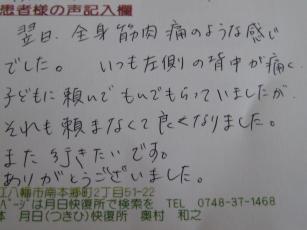 患者様の声記入欄
翌日、全身筋肉痛のような感じ
でした。 いつも左側の背中が痛く、
子どもに頼んで もんでもらっていましたが、
それも頼まなくて良くなりました。
また行きたいです。
ありがとうございました。
江八幡市南本郷町2丁目51-22
ページは月日快復所で検索を TEL 0748-37-1468
月日(つきひ)快復所 奥村 和之